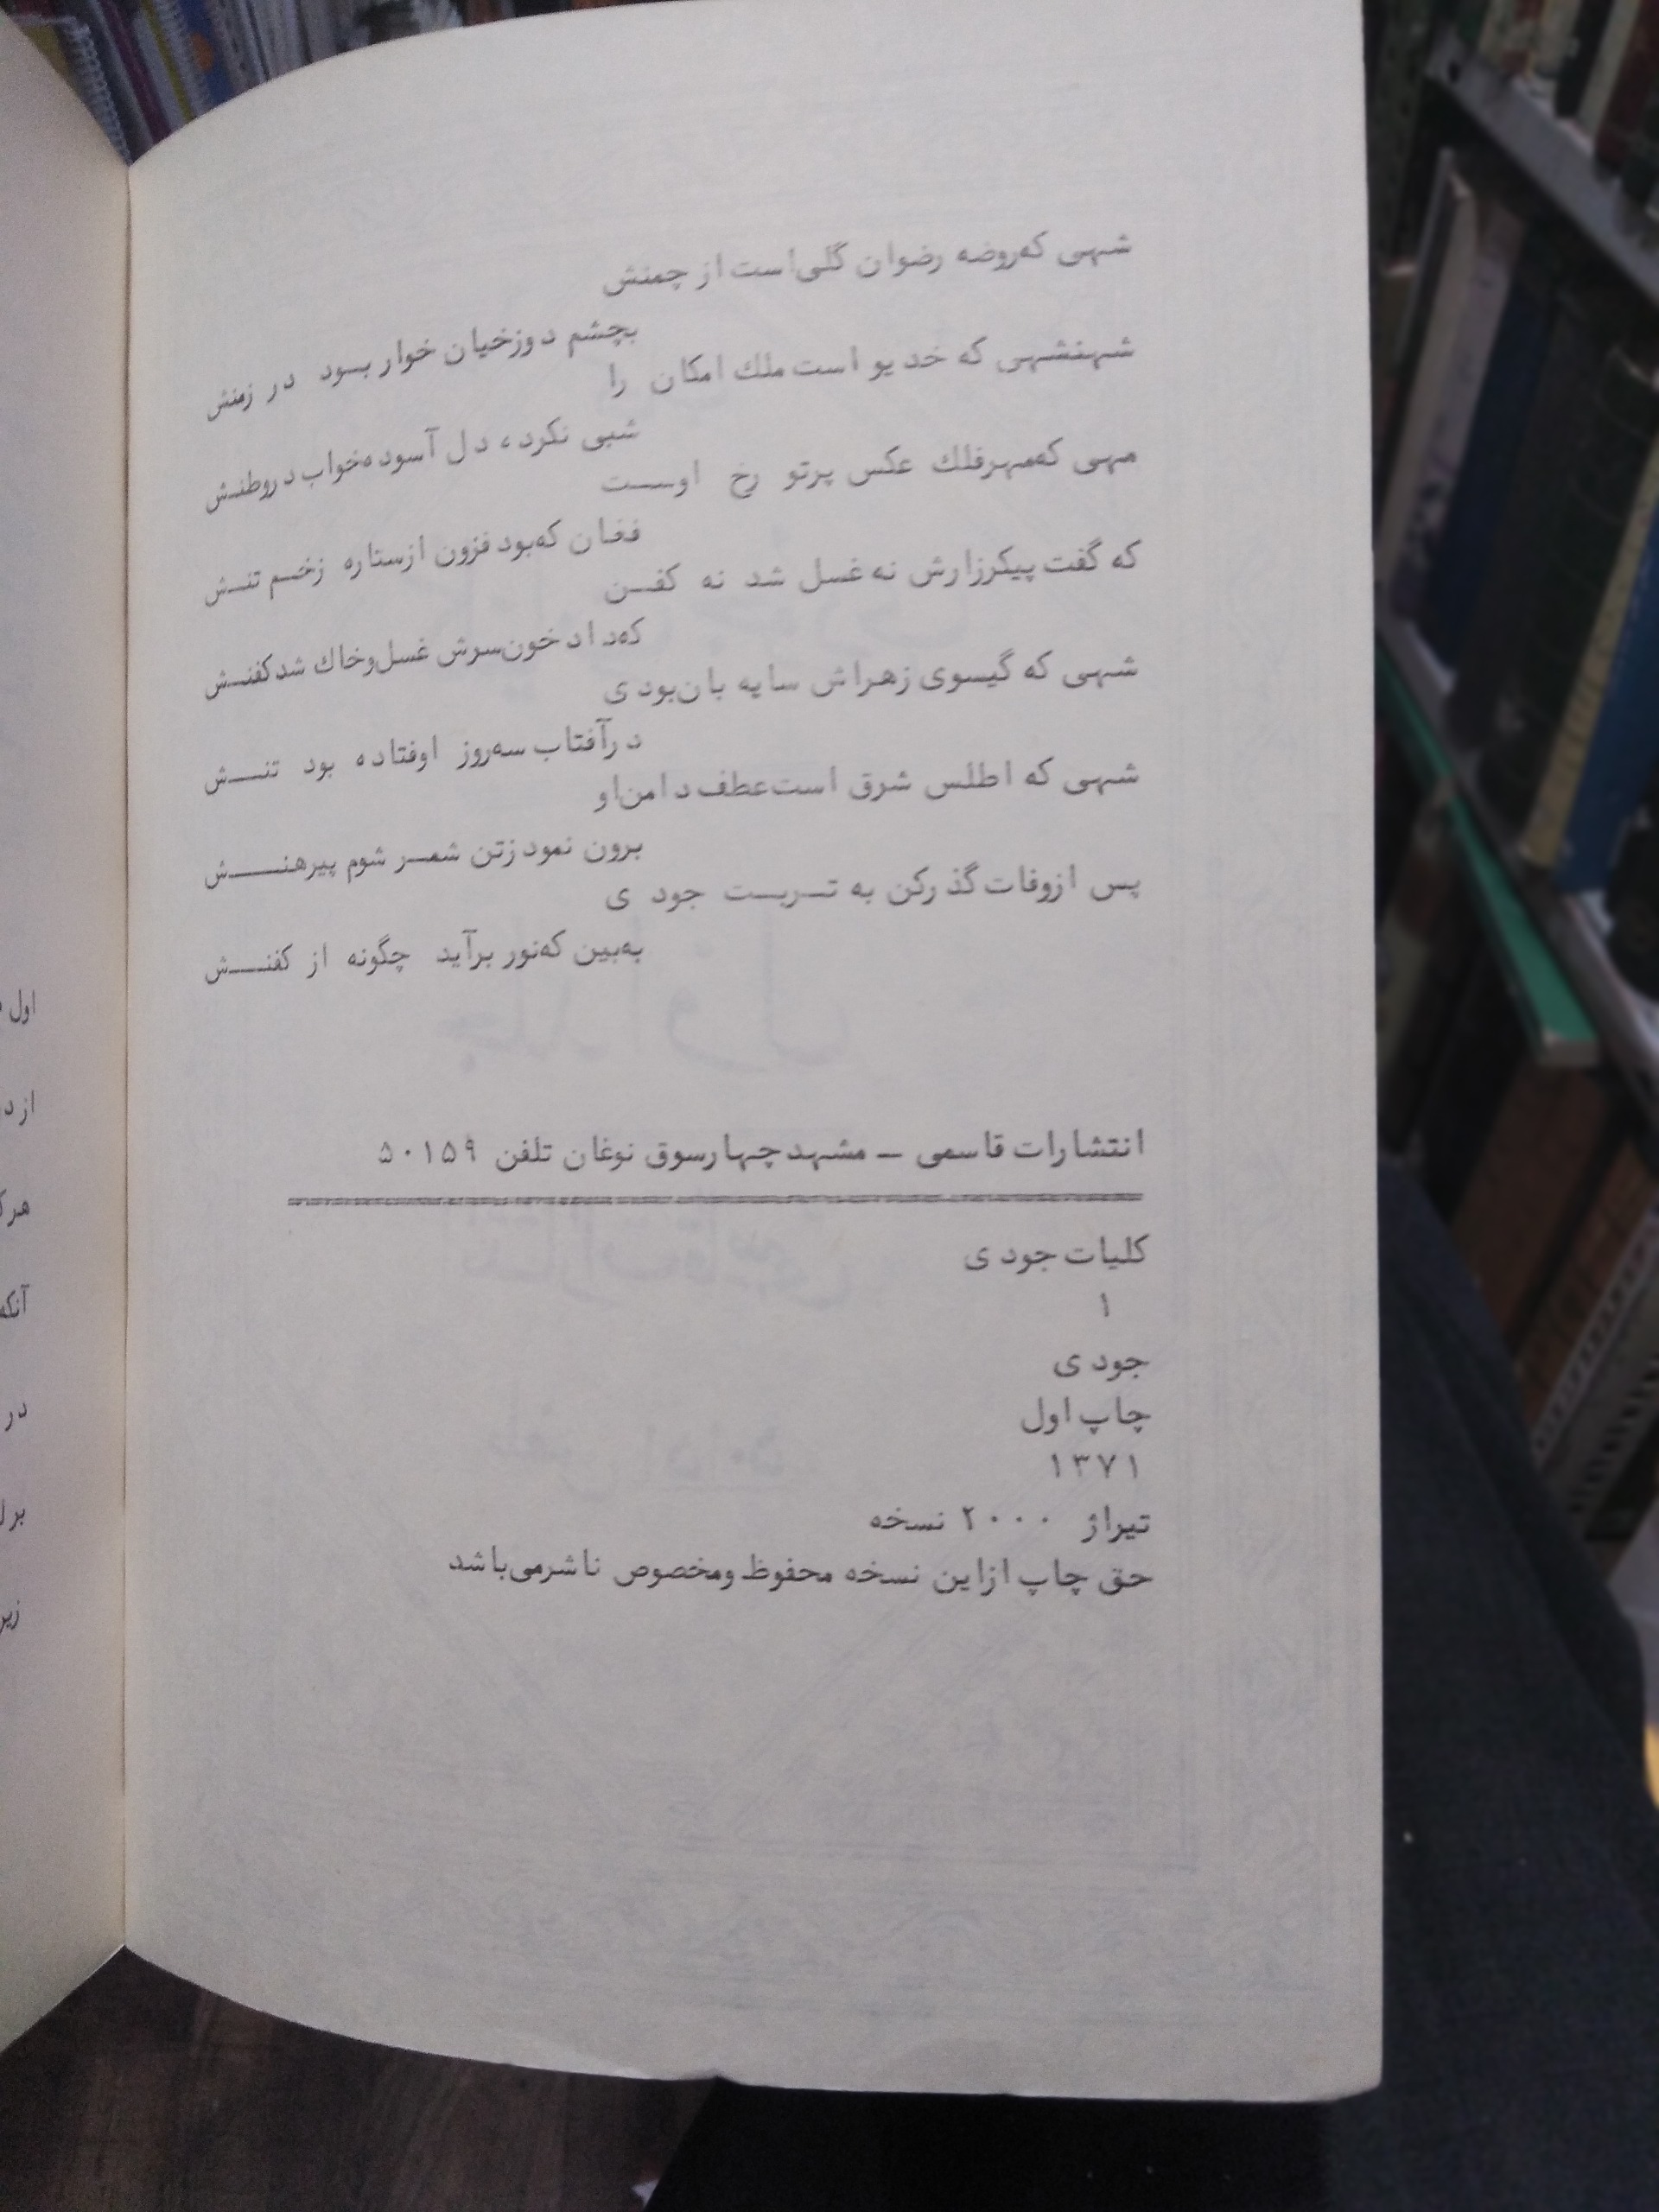 شهی که‌روضه رضوان گلی‌است از چمنش
بچشم دوزخیان خوار بود در زمنش
شهنشهی که خدیو است ملك امکان را
شبی نکرد، دل آسوده‌خواب دروطنش
مهی که‌مهرفلك عکس پرتو رخ اوست
فغان که‌بود فزون ازستاره زخم تنش
که گفت پیکرزارش نه غسل شد نه کفن
که‌داد خون‌سرش غسل‌وخاك شدکفنش
شهی که گیسوی زهراش سایه بان‌بودی
درآفتاب سه‌روز اوفتاده بود تنش
شهی که اطلس شرق است‌عطف دامن‌او
برون نمود زتن شمر شوم پیرهنش
پس ازوفات گذرکن به تربت جودی
به‌بین که‌نور برآید چگونه از کفنش
انتشارات قاسمی – مشهدچهارسوق نوغان تلفن ۵۰۱۵۹
کلیات جودی
۱
جودی
چاپ اول
۱۳۷۱
تیراژ ۲۰۰۰ نسخه
حق چاپ ازاین نسخه محفوظ ومخصوص ناشرمی‌باشد
اول
از
آنکه
در